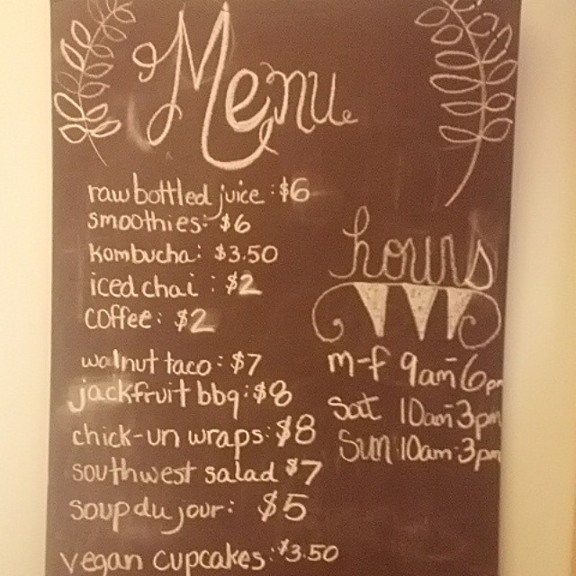 Menu
raw bottled juice: $6
smoothies: $6
kombucha: $3.50
iced chai: $2
coffee: $2
walnut taco: $7
jackfruit bbq: $8
chick-un wraps: $8
southwest salad $7
soup du jour: $5
vegan cupcakes: $3.50
hours
m-f 9am-6pm
Sat 10am-3pm
Sun: 10am-3pm